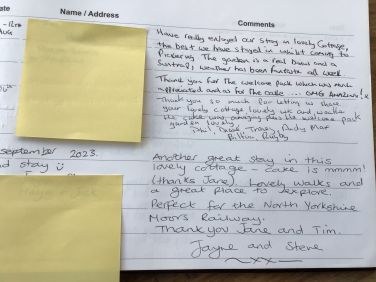 ate
Name / Address
Comments
AUG
Have really enjoyed our stay in lovely Cottage,
the best we have stayed in whilst coming to
Pickering. The garden is a real bonus and a
Suntrap, weather has been fantastic all week
Thank you for the welcome pack which was much
appreciated and as for the cake ... OMG Amazing!x
Thank you so much for letting us share
your lovely cottage lovely
the cake was amazing plus the welcome pack
garden lovely
Tracy, Andy
september 2023.
d stay
Another great stay in this
lovely cottage - cake is mmmm!
(thanks Jane). Lovely walks and
a great place to explore.
Perfect for the North Yorkshire
Moors Railway.
Thank you Jane and Tim.
Jayne and Steve